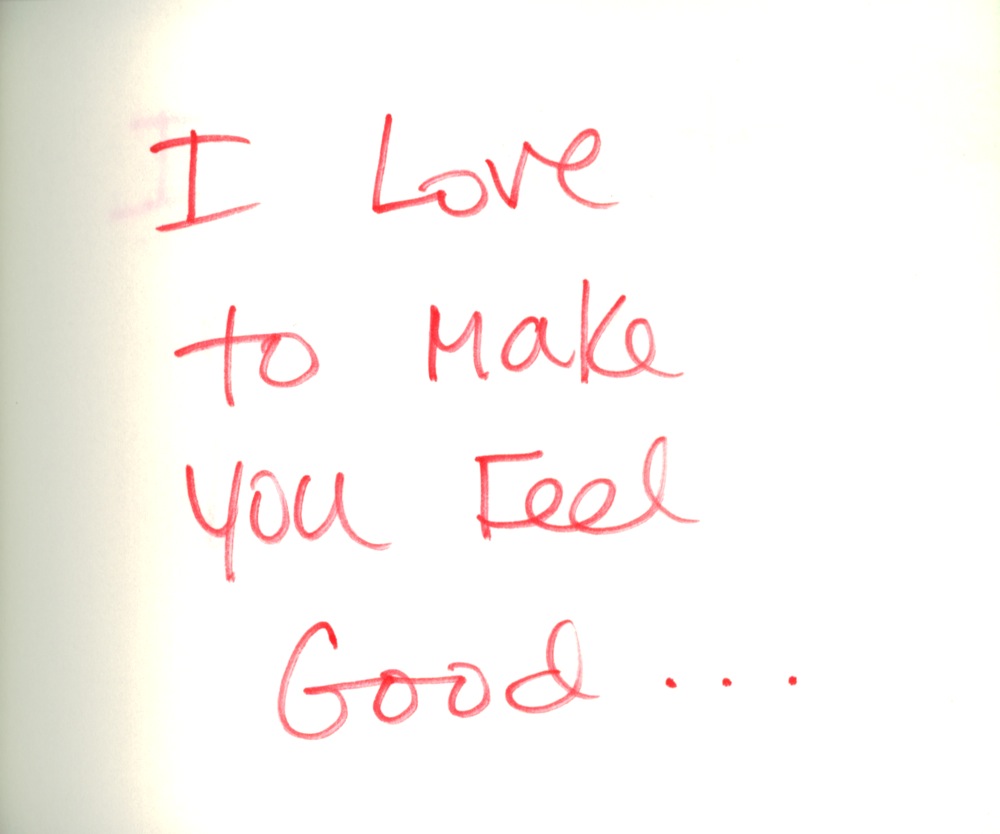 I Love
to Make
you Feel
Good ...